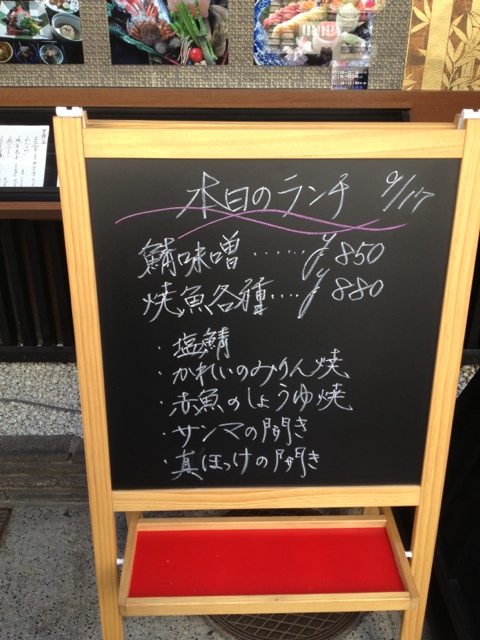 本日のランチ 9/17
鯖味噌・・・・・・¥850
焼魚各種・・・・¥880
・塩鯖
・かれいのみりん焼
・赤魚のしょうゆ焼
・サンマの開き
・真ほっけの開き